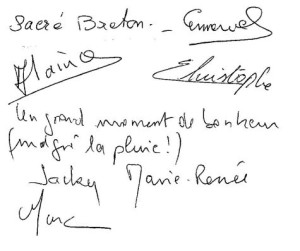 Sacré Breton. - Emmanuel
Alaina Christophe
Un grand moment de bonheur
(malgré la pluie!)
Jacky Marie-Renée
Marc